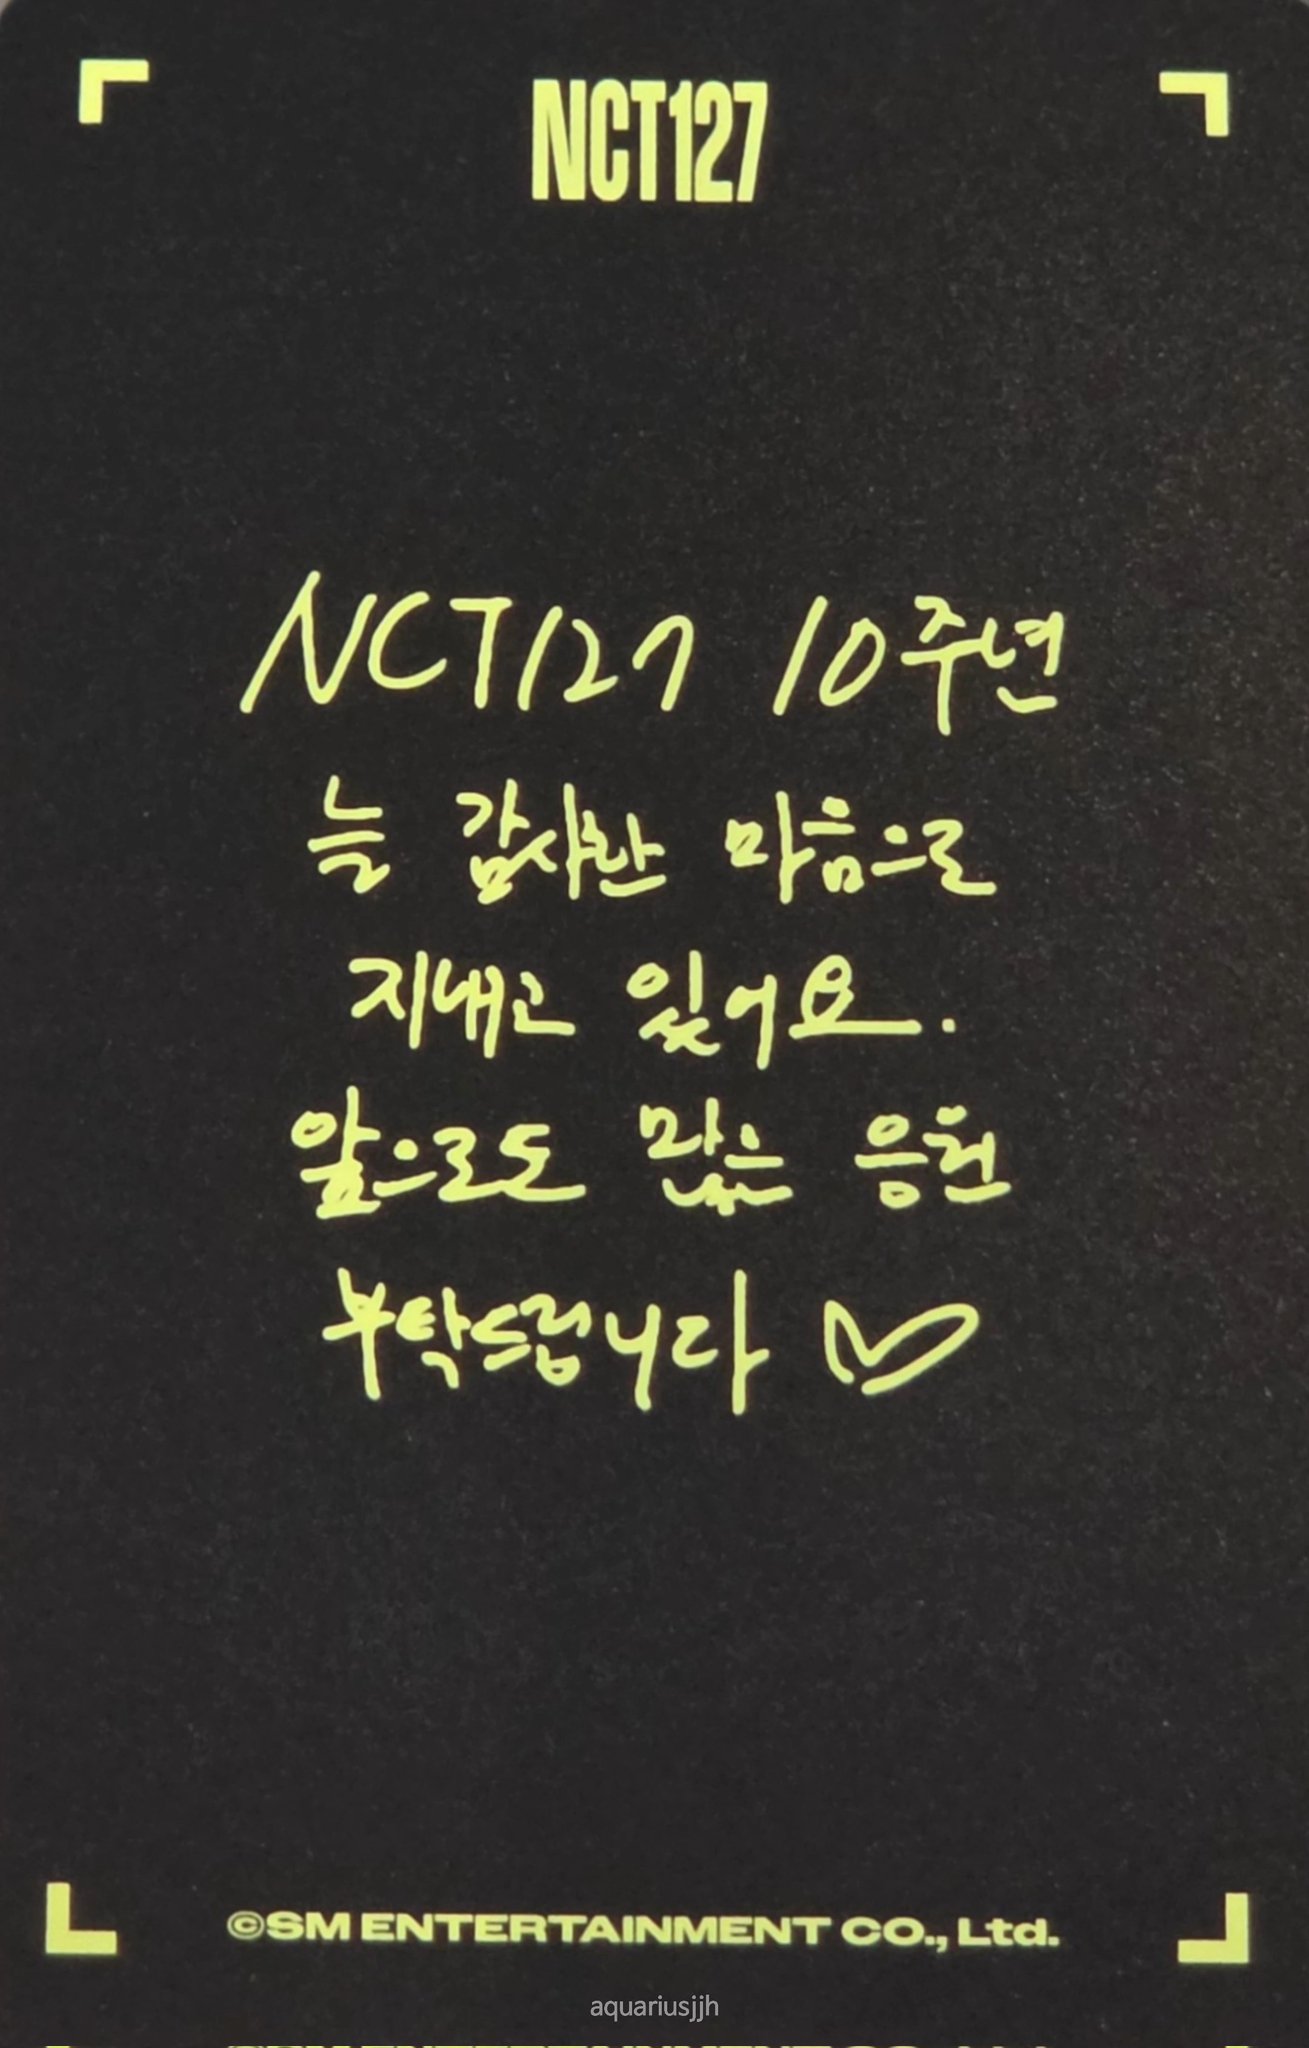 NCT127
NCT127 10주년
늘 감사한 마음으로
지내고 있어요.
앞으로도 많은 응원
부탁드립니다 ♡
©SM ENTERTAINMENT CO., Ltd.
aquariusjjh